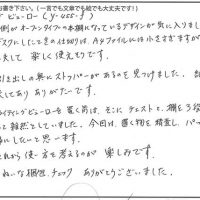 お書き下さい。（一言でも文章でも絵でも大丈夫です！）
ビューロー（y-055-f）
側がオープンタイプの本棚になっているデザインが気に入りまし
デスクにしたときの仕切りは、A4ファイルには小さすぎますが
夫して 楽しく使えそうです。
引き出しの奥にストッパーがあるのを見つけました。
えてあり ありがたいです。
ライティングビューローを置く前は、そこに チェストと、棚を3
と 雑然としていました。今回は 置く物を精査し、
にしたいと思います。
これから 使い方を考えるのが 楽しみです。
ねいな梱包、チェック ありがとうございました。